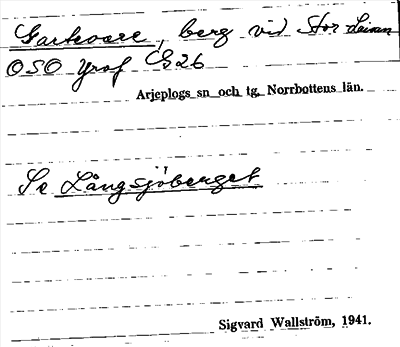 Garkvare, berg vid Stor Laisan
OSO Graf CS26
Arjeplogs sn och tg, Norrbottens län.
Se Långsjöberget
Sigvard Wallström, 1941.